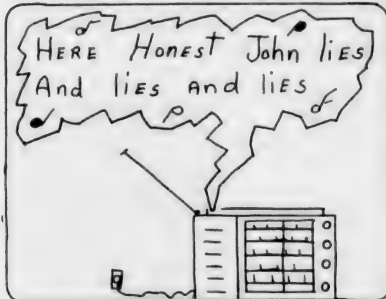 HERE Honest John lies
And lies and lies